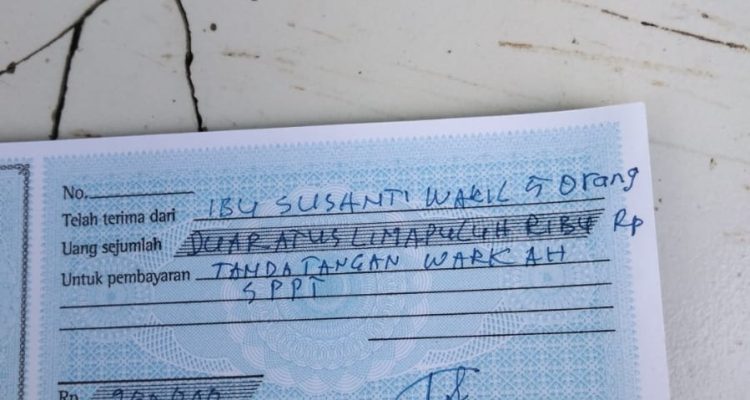 No.
Telah terima dari IBU SUSANTI WAKIL 5 Orang
Uang sejumlah DUARATUS LIMAPULUH RIBU Rp
Untuk pembayaran TANDATANGAN WARKAH
SPPT
Rp